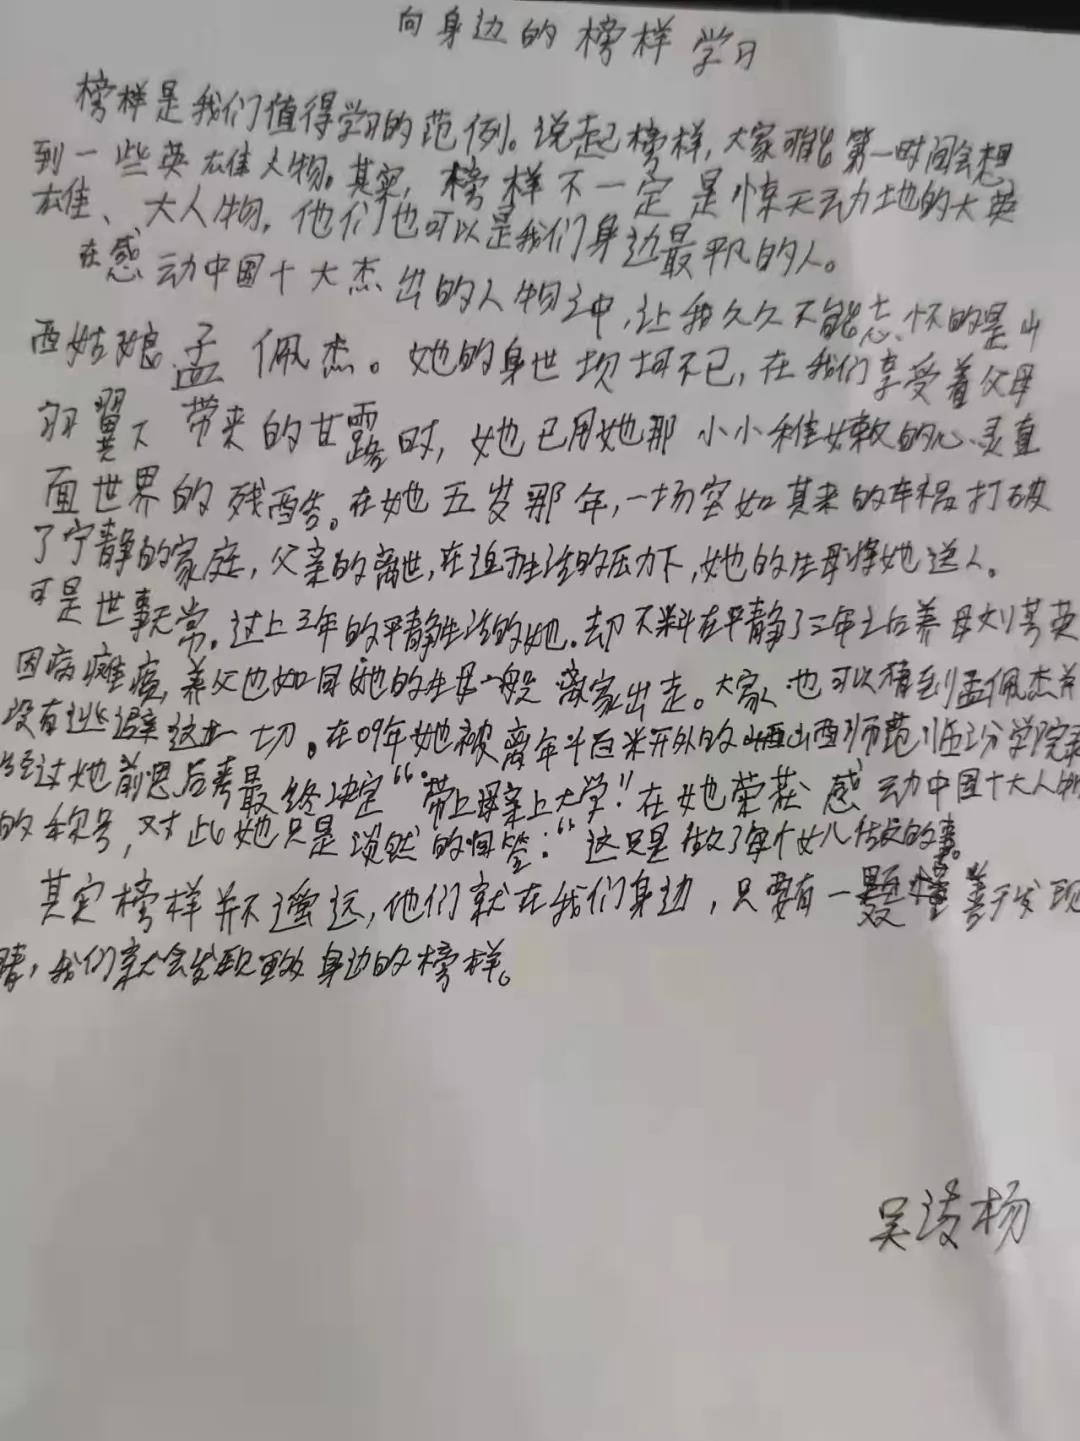 向身边的榜样学习
榜样是我们值得学习的范例。说起榜样，大家可能第一时间会想
到一些英雄人物。其实，榜样不一定是惊天动地的大英
雄、大人物，他们也可以是我们身边最平凡的人。
在感动中国十大杰出的人物之中，让我久久不能忘怀的是山
西姑娘孟佩杰。她的身世坝坷不已，在我们享受着父母
羽翼下带来的甘露时，她已用她那小小稚嫩的心灵直
面世界的残酷。在她五岁那年，一场突如其来的车祸打破
了宁静的家庭，父亲的离世，在迫于生活的压力下，她的生母将她送人。
可是世事无常。过上三年的平静生活的她。却不料在平静了三年之后养母刘芩英
因病瘫痪，养父也如同她的生母一般离家出走。大家也可以猜到孟佩杰并
没有逃避这一切。在09年她被离年斗百米开外的山西师范临汾学院录
经过她前思后考最终决定“带上母亲上大学！”在她荣获感动中国十大人物
的称号，对此她只是淡然的回答：“这只是做了每个女儿做的事。
其实榜样并不遥远，他们就在我们身边，只要有一善于发现
睛，我们就会发现更多身边的榜样。
吴凌杨